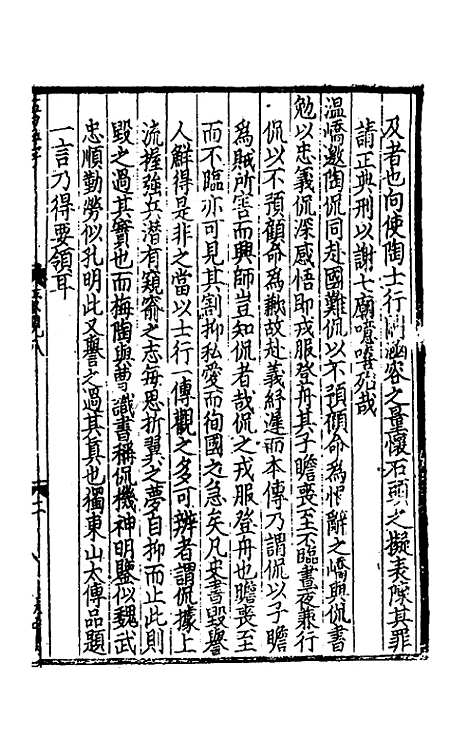 及者也向使陶士行闕涵容之量懷石頭之擬夷陳其罪
請正典刑以謝七廟噫嘻殆哉
温嶠邀陶侃同赴國難侃以不預顧命為恨辭之嶠與侃書
勉以忠義侃深感悟即戎服登舟其子瞻喪至不臨晝夜兼行
侃以不預顧命為歉故赴義紓遲而本傳乃謂侃以子瞻
為賊所害而興師豈知侃者哉侃之戎服登舟也瞻喪至
而不臨亦可見其割抑私愛而徇國之急矣凡史書毀譽
人鮮得是非之當以士行一傳觀之多可辨者謂侃據上
流握強兵潛有窺窬之志每思折翼之夢自抑而止此則
毀之過其實也而梅陶與曹識書稱侃機神明鑒似魏武
忠順勤勞似孔明此又譽之過其真也獨東山太傅品題
一言乃得要領耳